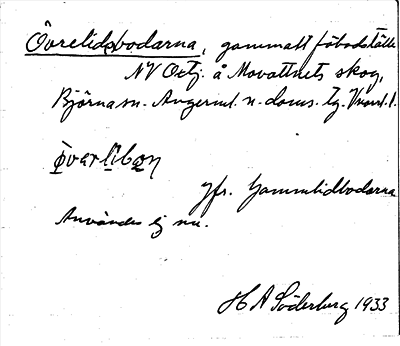 Övrelidsbodarna, gammalt fäbodställe
NV Ostj. å Movattnets skog,
Björna sn. Ångerml. n. doms. tg. Vnorrl. l.
övarlibon
Jfr. Gammlidbodarna
Användes ej nu.
H A Söderberg 1933